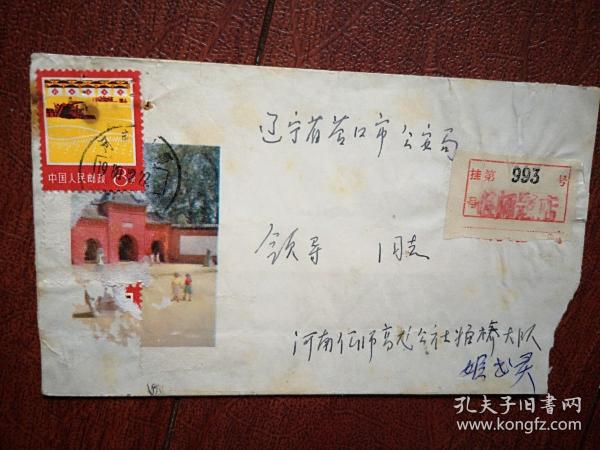 中国人民邮政 8分
辽宁省营口市公安局
挂第 993 号
领导 同志
河南偃师高龙公社
大队
孔夫子旧书网
www.kongfz.com